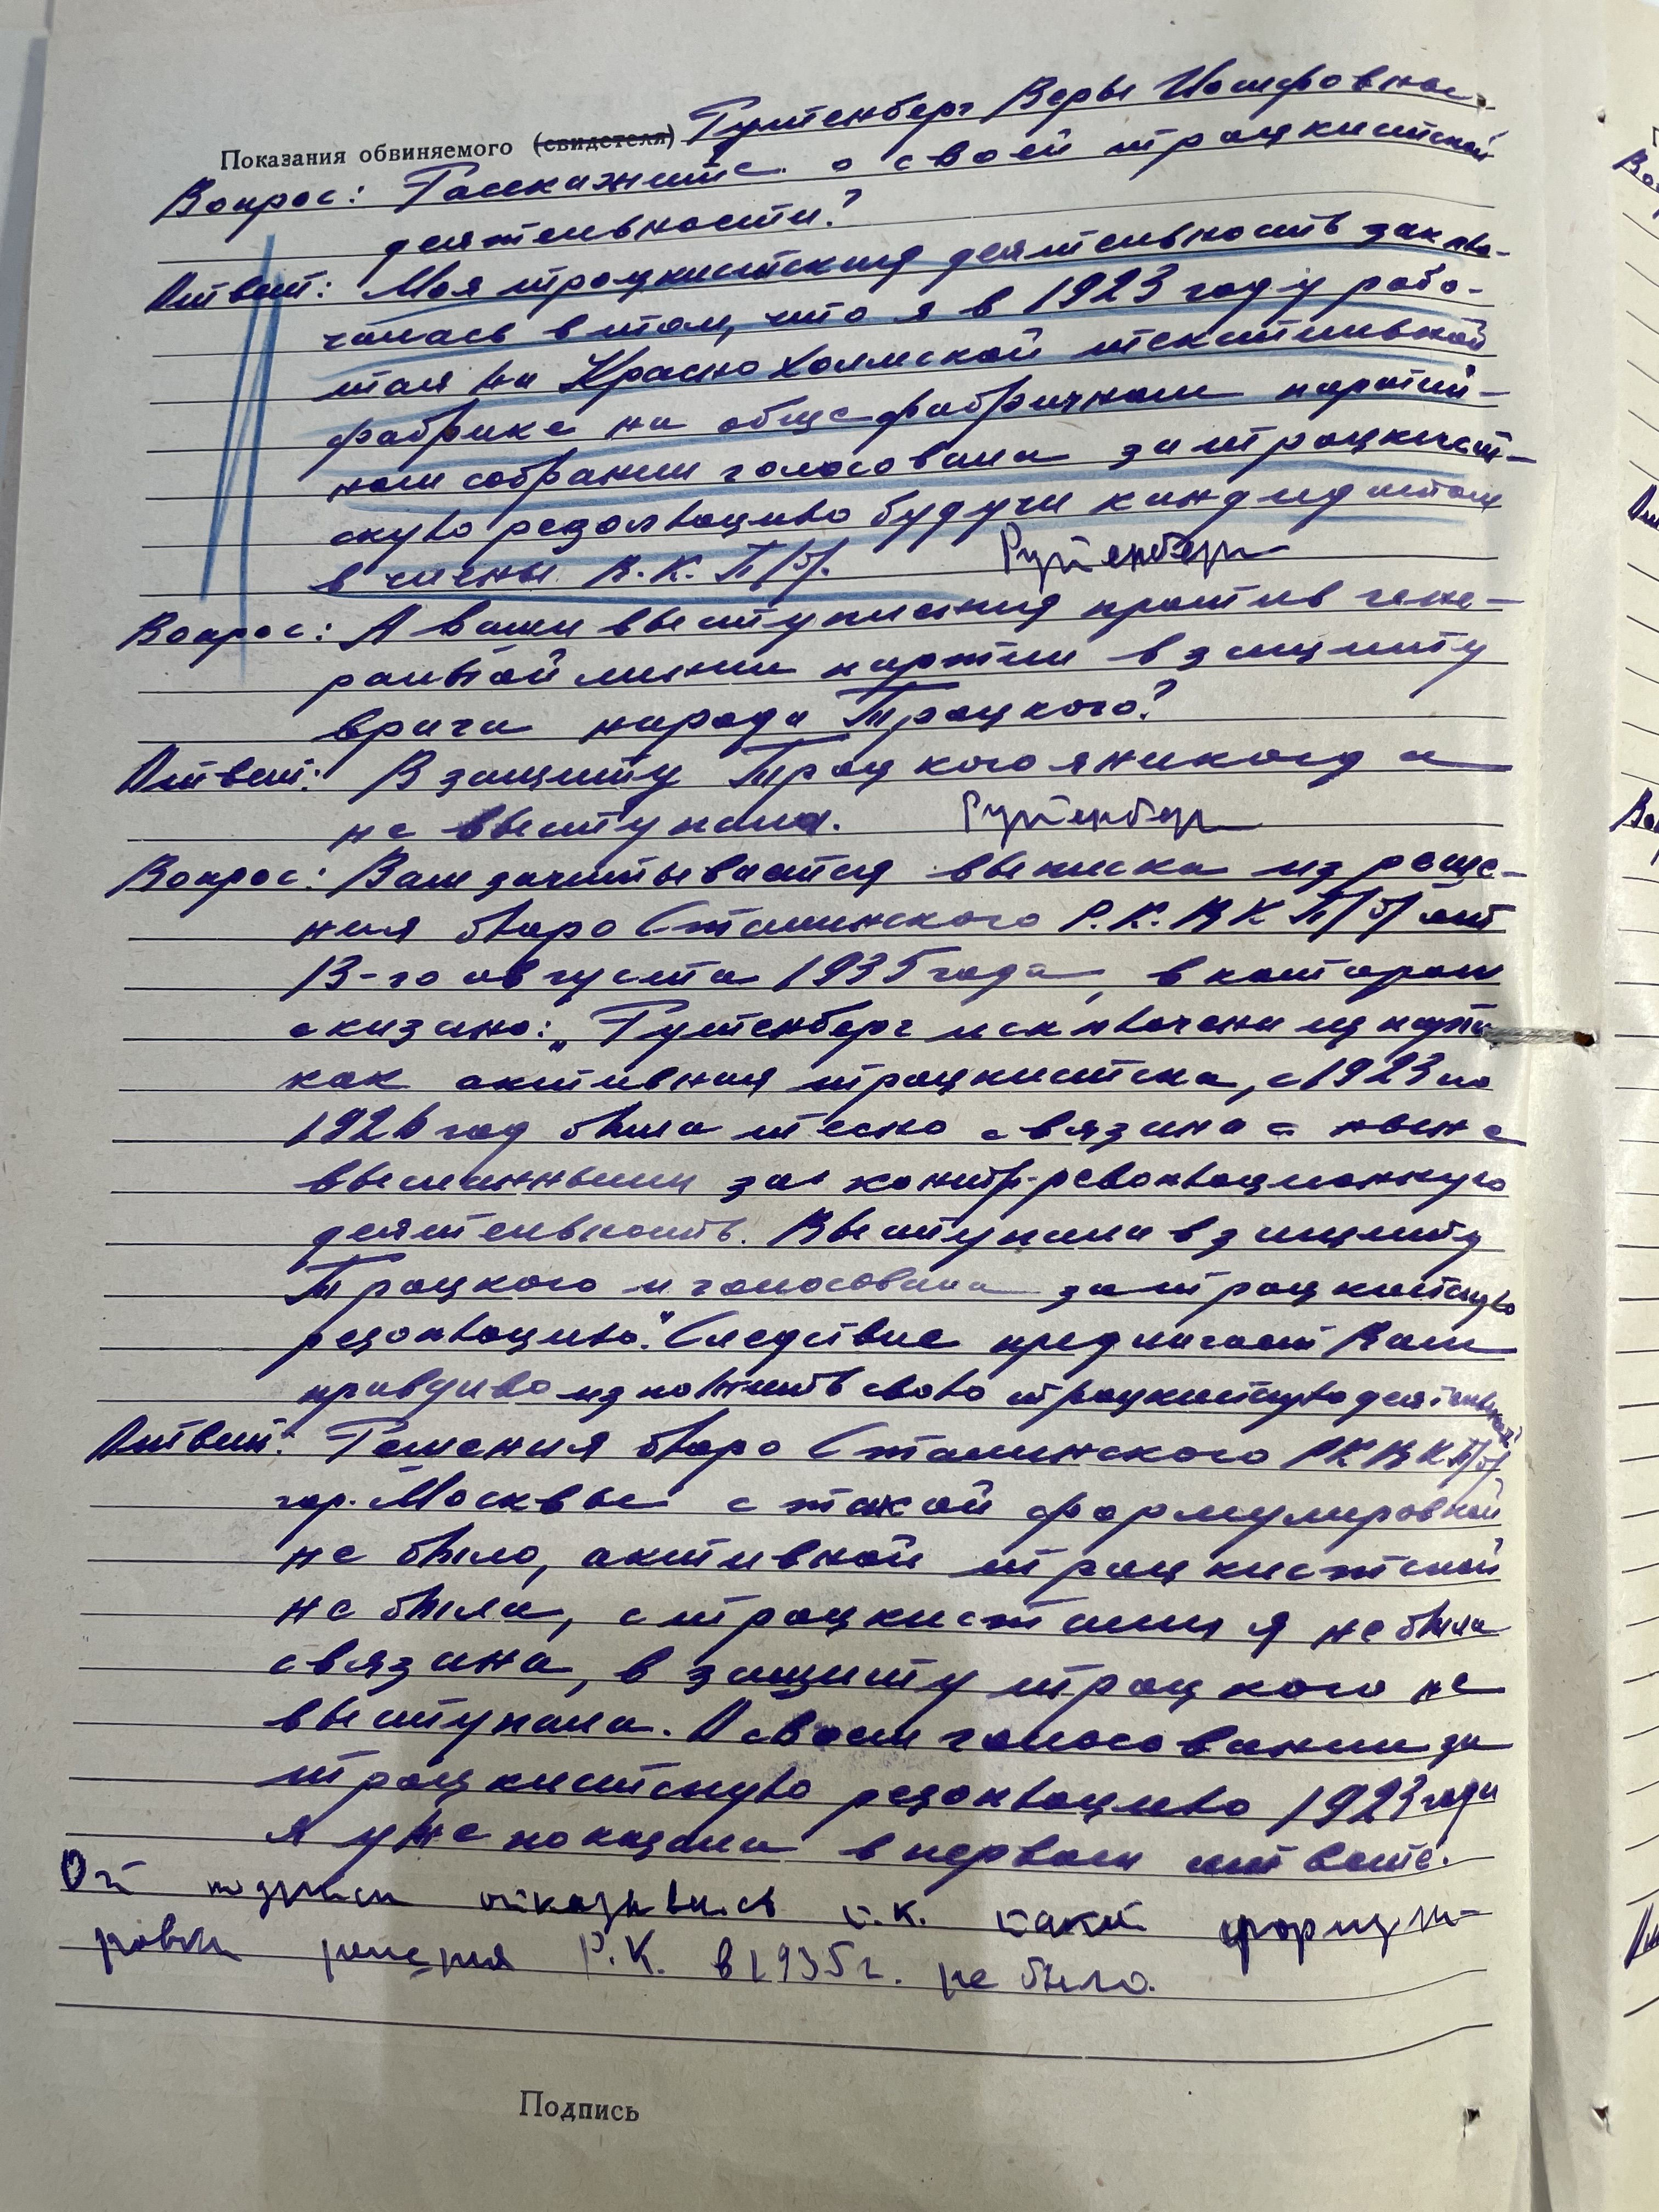 Показания обвиняемого (свидетеля) Рутенберг Веры Иосифовны.
Вопрос: Расскажите о своей троцкистской
деятельности?
Ответ: Моя троцкистская деятельность заклю-
чалась в том, что я в 1923 году рабо-
тая на Краснохолмской текстильной
фабрике на общефабричном партий-
ном собрании голосовала за троцкист-
скую резолюцию будучи кандидатом
в члены В.К.П/б/. Рутенберг
Вопрос: А ваши выступления против гене-
ральной линии партии в защиту
врага народа Троцкого?
Ответ: В защиту Троцкого я никогда
не выступала. Рутенберг
Вопрос: Вам зачитывается выписка из реше-
ния бюро Сталинского Р.К.ВКП/б/ от
13-го августа 1935 года, в котором
сказано: „Рутенберг исключена из парти
как активная троцкистска, с 1923 по
1926 год была тесно связана с ныне
высланными за контр-революционную
деятельность. Выступала в защиту
Троцкого и голосовала за троцкистскую
резолюцию." Следствие предлагает Вам
правдиво изложить свою троцкистскую деятельность
Ответ: Решения бюро Сталинского РКВКП/б/
гор. Москвы с такой формулировкой
не было, активной троцкистской
не была, с троцкистами я не была
связана, в защиту троцкого не
выступала. О своем голосовании за
троцкистскую резолюцию 1923 года
я уже показала в первом ответе.
От подписи отказалась т.к. такой формули-
ровки решения Р.К. в 1935 г. не было.
Подпись